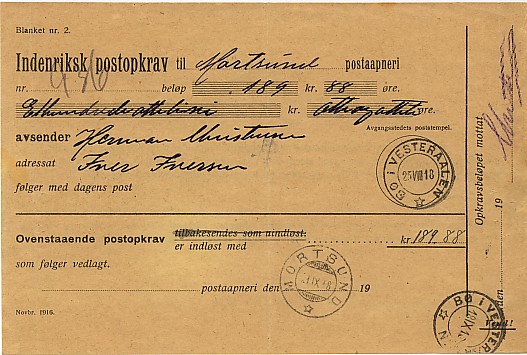 Blanket nr. 2.
Indenriksk postopkrav til Mortsund postaapneri
nr. 946 beløp 189 kr. 88 øre.
Ethundredeottini kr. ottiogotte øre.
Avgangsstedets poststempel.
avsender Herman
adressat Iver Iversen
følger med dagens post
BØ i VESTERAALEN
25 VIII 18
Ovenstaaende postopkrav tilbakesendes som uindløst.
er indløst med kr. 189.88
som følger vedlagt.
postaapneri den 19
MORTSUND
1 IX 18
Novbr. 1916.
Opkravsbeløpet mottat
den 19
BØ i VESTER
IX 1
Vend!